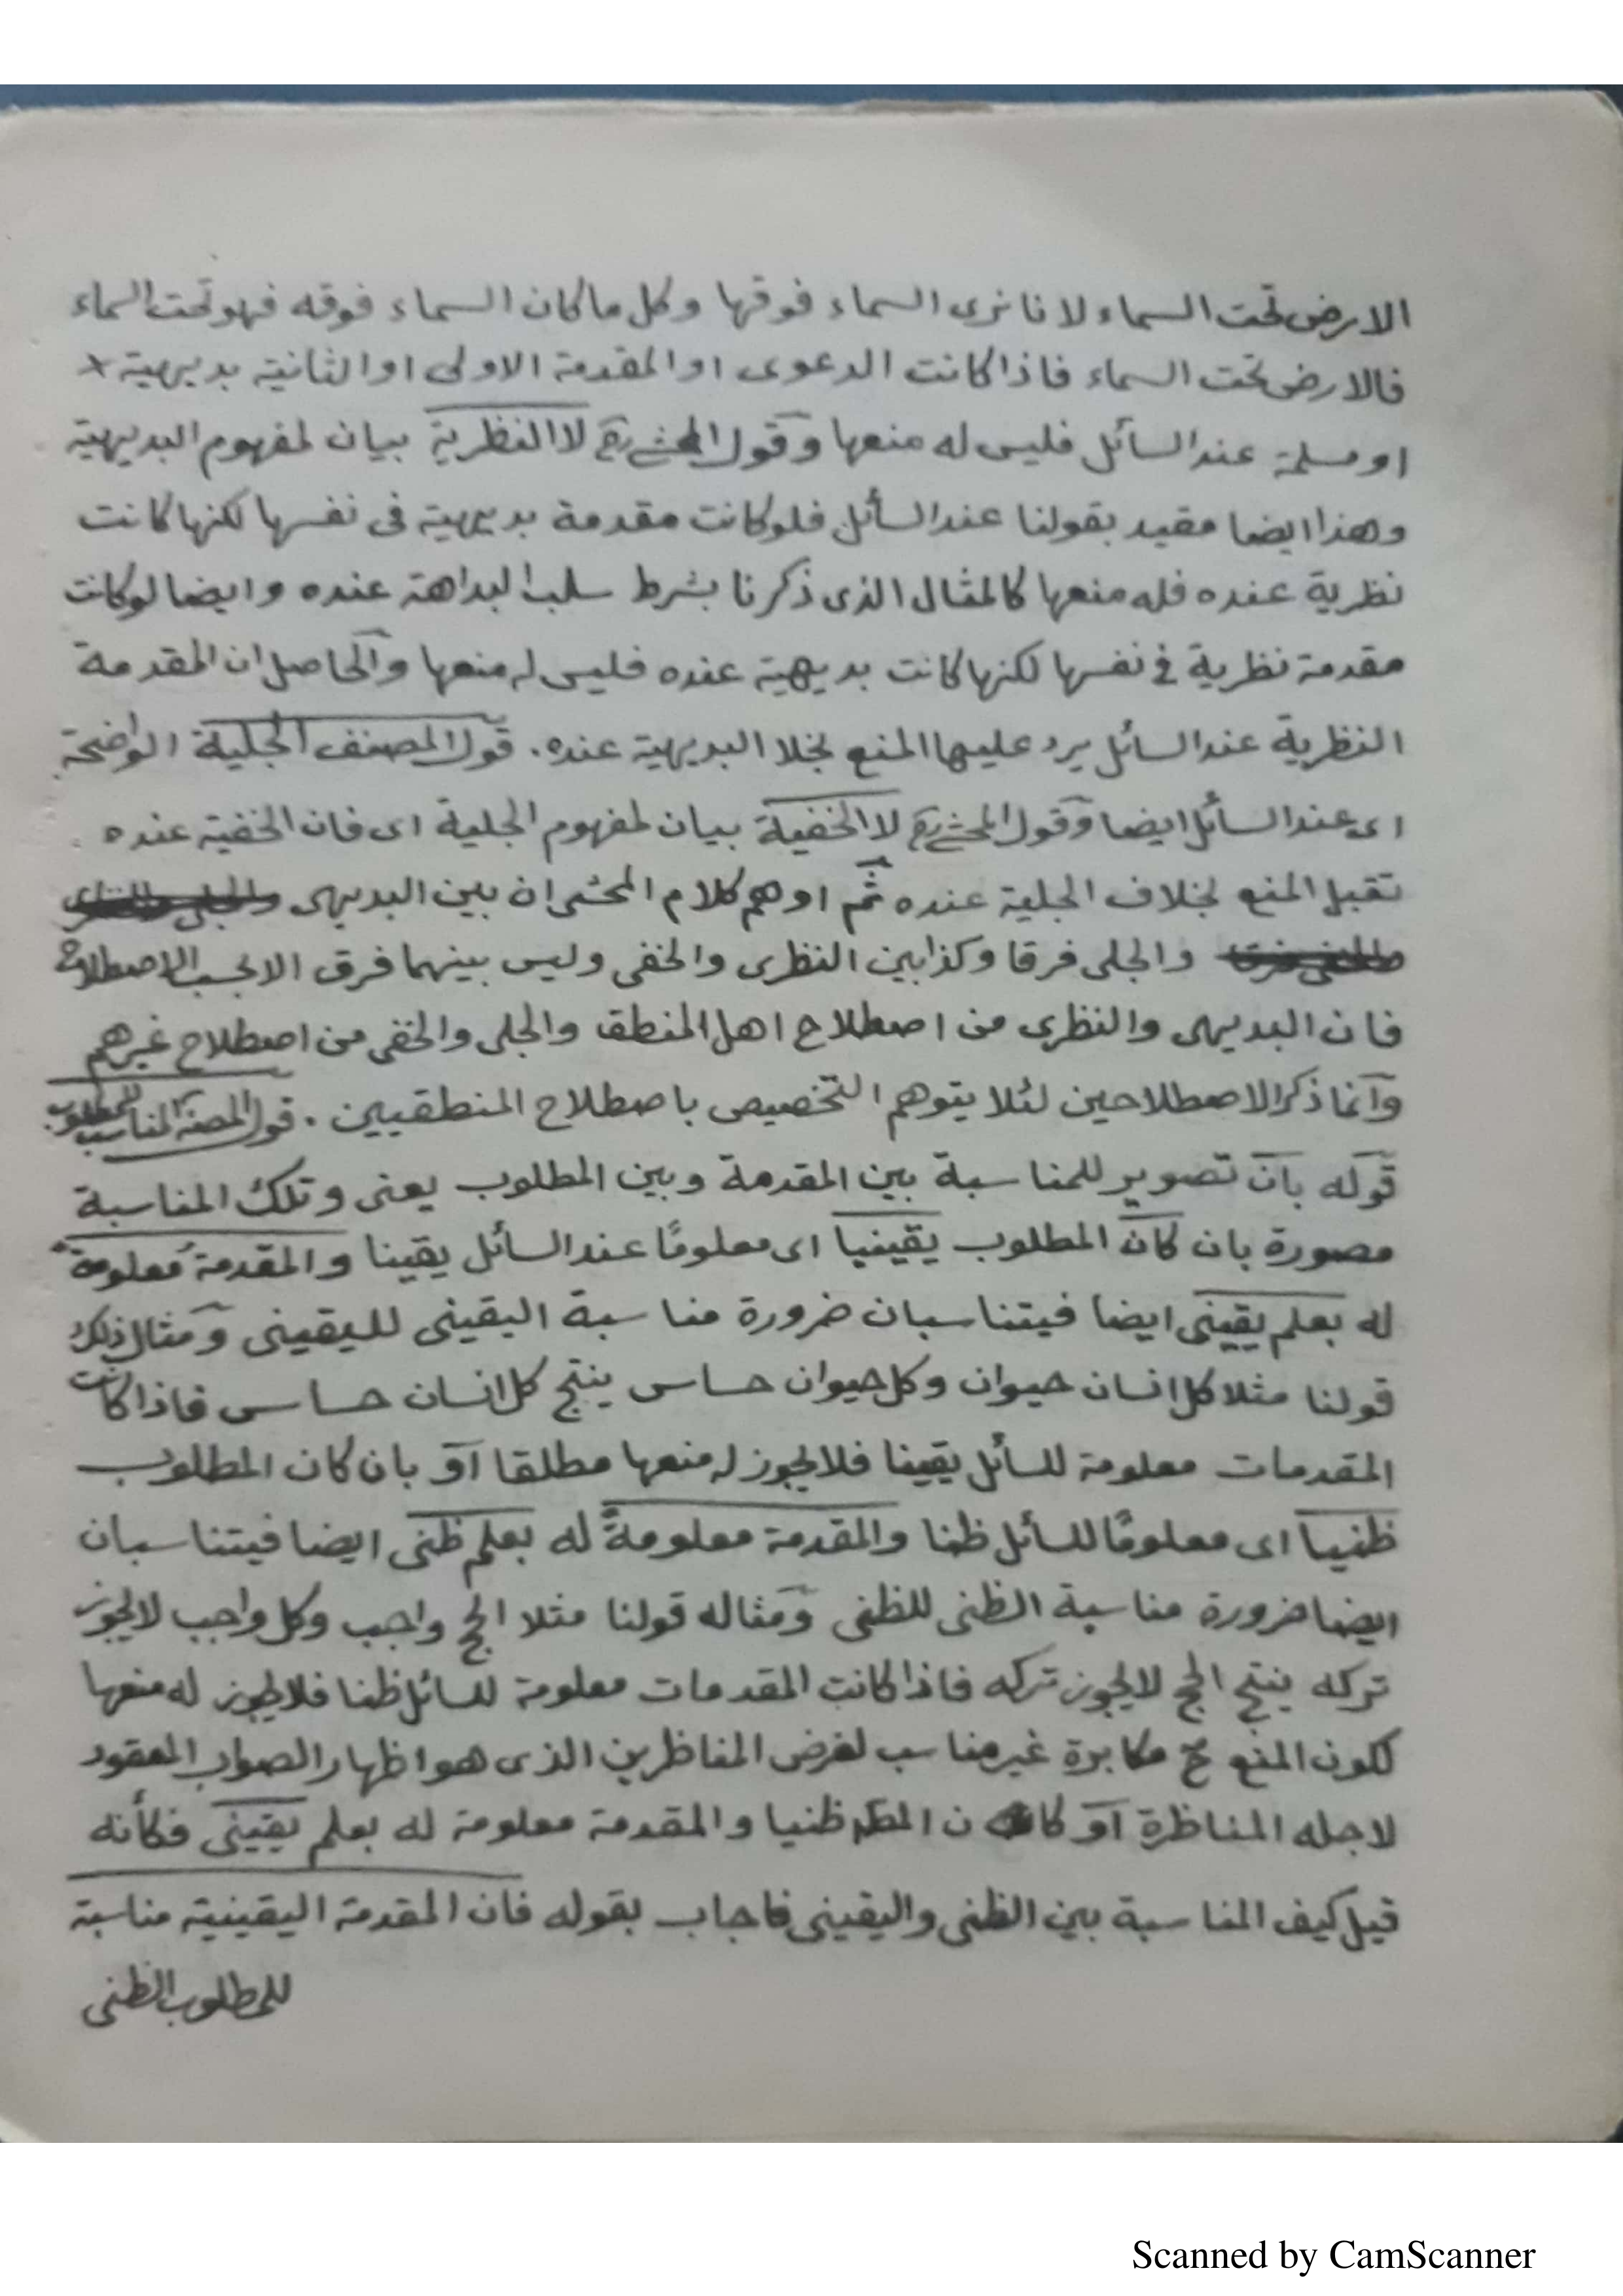 الارض تحت السماء لانا نرى السماء فوقها وكل ما كان السماء فوقه فهو تحت السماء
فالارض تحت السماء فاذا كانت الدعوى او المقدمة الاولى او الثانية بديهية
او مسلمة عند السائل فليس له منعها وقول المحشى رح لا النظرية بيان لمفهوم البديهية
وهذا ايضا مقيد بقولنا عند السائل فلو كانت مقدمة بديهية فى نفسها لكنها كانت
نظرية عنده فله منعها كالمثال الذى ذكرنا بشرط سلب البداهة عنده وايضا لو كانت
مقدمة نظرية فى نفسها لكنها كانت بديهية عنده فليس له منعها والحاصل ان المقدمة
النظرية عند السائل يرد عليها المنع بخلا البديهية عنده. قول المصنف الجلية الواضحة
اى عند السائل ايضا وقول المحشى رح لا الخفية بيان لمفهوم الجلية اى فان الخفية عنده
تقبل المنع بخلاف الجلية عنده ثم اوهم كلام المحشى ان بين البديهى
والجلى فرقا وكذا بين النظرى والخفى وليس بينهما فرق الا بحسب الاصطلاح
فان البديهى والنظرى من اصطلاح اهل المنطق والجلى والخفى من اصطلاح غيرهم
وانما ذكر الاصطلاحين لئلا يتوهم التخصيص باصطلاح المنطقيين. قول المصنف المناسب للمطلوب
قوله بان تصوير للمناسبة بين المقدمة وبين المطلوب يعنى وتلك المناسبة
مصورة بان كان المطلوب يقينيا اى معلومًا عند السائل يقينا والمقدمة معلومة
له بعلم يقينى ايضا فيتناسبان ضرورة مناسبة اليقينى لليقينى ومثال ذلك
قولنا مثلا كل انسان حيوان وكل حيوان حساس ينتج كل انسان حساس فاذا كانت
المقدمات معلومة للسائل يقينا فلا يجوز له منعها مطلقا او بان كان المطلوب
ظنيا اى معلومًا للسائل ظنا والمقدمة معلومةً له بعلم ظنى ايضا فيتناسبان
ايضا ضرورة مناسبة الظنى للظنى ومثاله قولنا مثلا الحج واجب وكل واجب لا يجوز
تركه ينتج الحج لا يجوز تركه فاذا كانت المقدمات معلومة للسائل ظنا فلا يجوز له منعها
لكون المنع ح مكابرة غير مناسب لغرض المناظرين الذى هو اظهار الصواب المعقود
لاجله المناظرة او كان المط ظنيا والمقدمة معلومة له بعلم يقينى فكأنه
قيل كيف المناسبة بين الظنى واليقينى فاجاب بقوله فان المقدمة اليقينية مناسبة
للمطلوب الظنى
Scanned by CamScanner